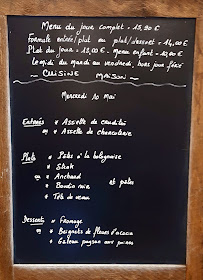 Menu du jour complet = 15,90 €
Formule entrée/plat ou plat/dessert = 14,00 €
Plat du jour = 13,00 €. Menu enfant = 12,00 €
Le midi du mardi au vendredi, hors jour férié
~ CUISINE MAISON ~
Mercredi 10 Mai
Entrées * Assiette de crudités
ou * Assiette de charcuterie
Plats * Pâtes à la bolognaise
* Steak
ou * Andouille
* Boudin noir et pâtes
* Tête de veau
Desserts * Fromage
ou * Beignets de fleurs d'acacia
* Gâteau paysan aux poires